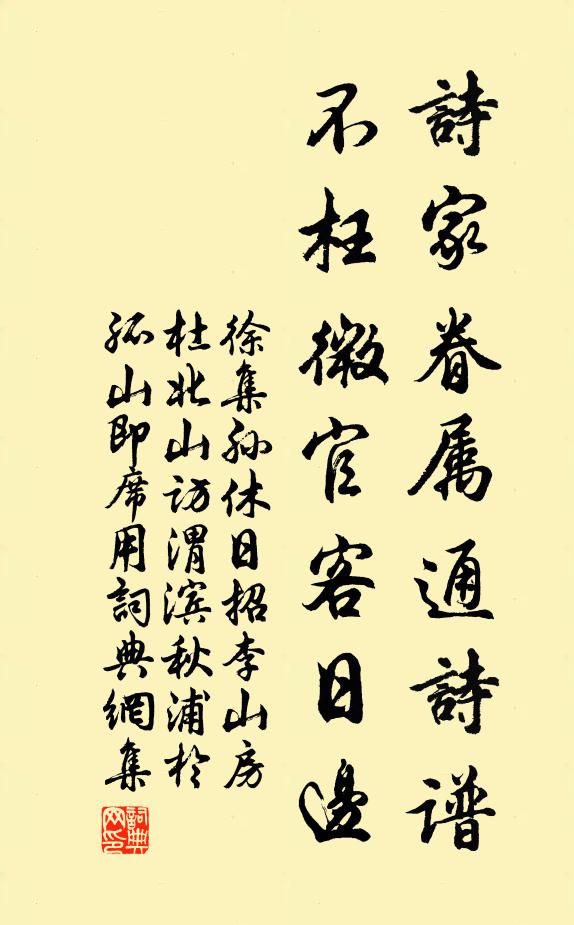 詩家眷属通詩谱
不枉微官客日邊
徐集孙休日招李山房
杜北山访渭滨秋浦於
孤山即席用詞典網集
詞典网印